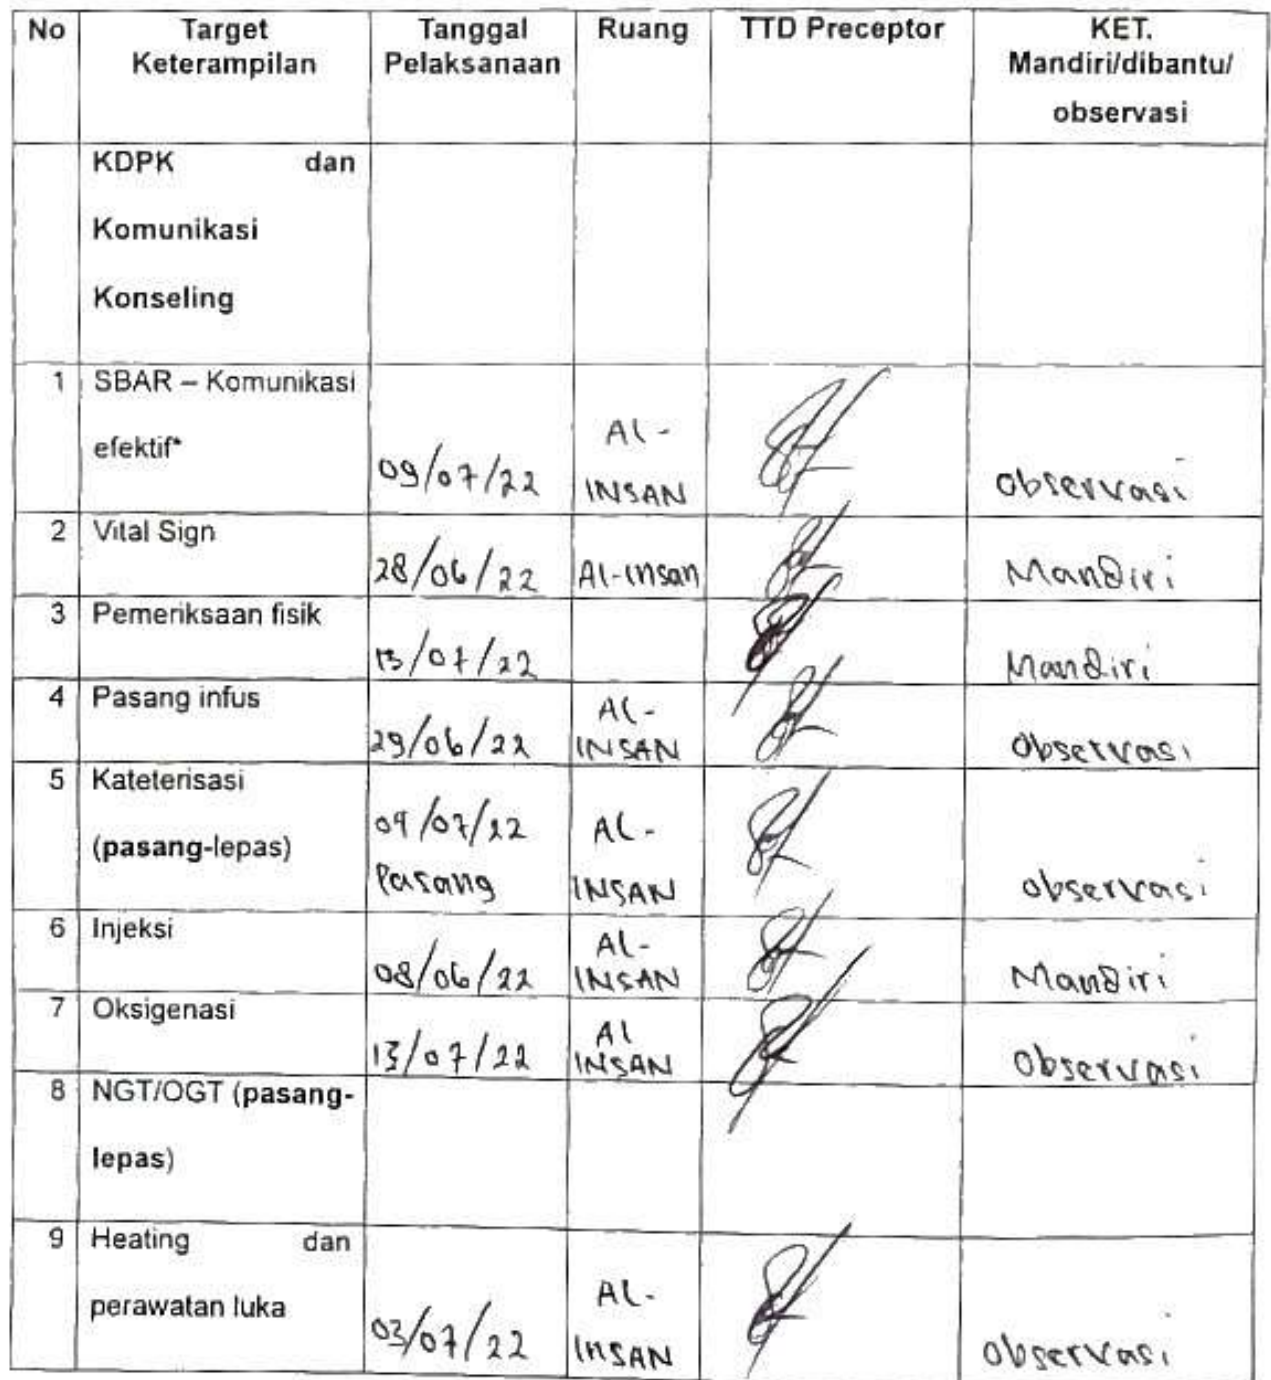 No Target Keterampilan Tanggal Pelaksanaan Ruang TTD Preceptor KET. Mandiri/dibantu/ observasi
KDPK dan
Komunikasi
Konseling
1 SBAR – Komunikasi
efektif* 09/07/22 Al-INSAN observasi
2 Vital Sign 28/06/22 Al-Insan Mandiri
3 Pemeriksaan fisik 13/07/22 Mandiri
4 Pasang infus 29/06/22 Al-INSAN Observasi
5 Kateterisasi
(pasang-lepas) 09/07/22 Pasang Al-INSAN observasi
6 Injeksi 08/06/22 Al-INSAN Mandiri
7 Oksigenasi 13/07/22 Al INSAN Observasi
8 NGT/OGT (pasang-
lepas)
9 Heating dan
perawatan luka 03/07/22 Al-INSAN Observasi